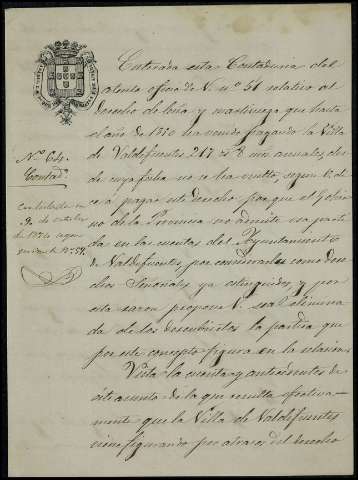 Enterada esta Contaduria del
atento oficio de V. nº 51 relativo al
derecho de leña y martiniega que hasta
el año de 1870 ha venido pagando la Villa
de Valdefuentes 217 rs 8 mrs anuales, des
de cuya fecha no se ha
se á pagar este derecho porque el Gobier
no de la Provincia no admite esa parti
da en las cuentas del Ayuntamiento
de Valdefuentes, por considerarla como dere
chos Señoriales ya estinguidos, y por
esta razon propone V. sea elimina
da de los descubiertos la partida que
por este concepto figura en la relacion.
Vista la cuenta y antecedentes de
este asunto de la que resulta efectiva-
mente que la Villa de Valdefuentes
viene figurando por atrasos del derecho
Nº 64.
Contadª
Contestado en
9 de octubre
de 1874 segun